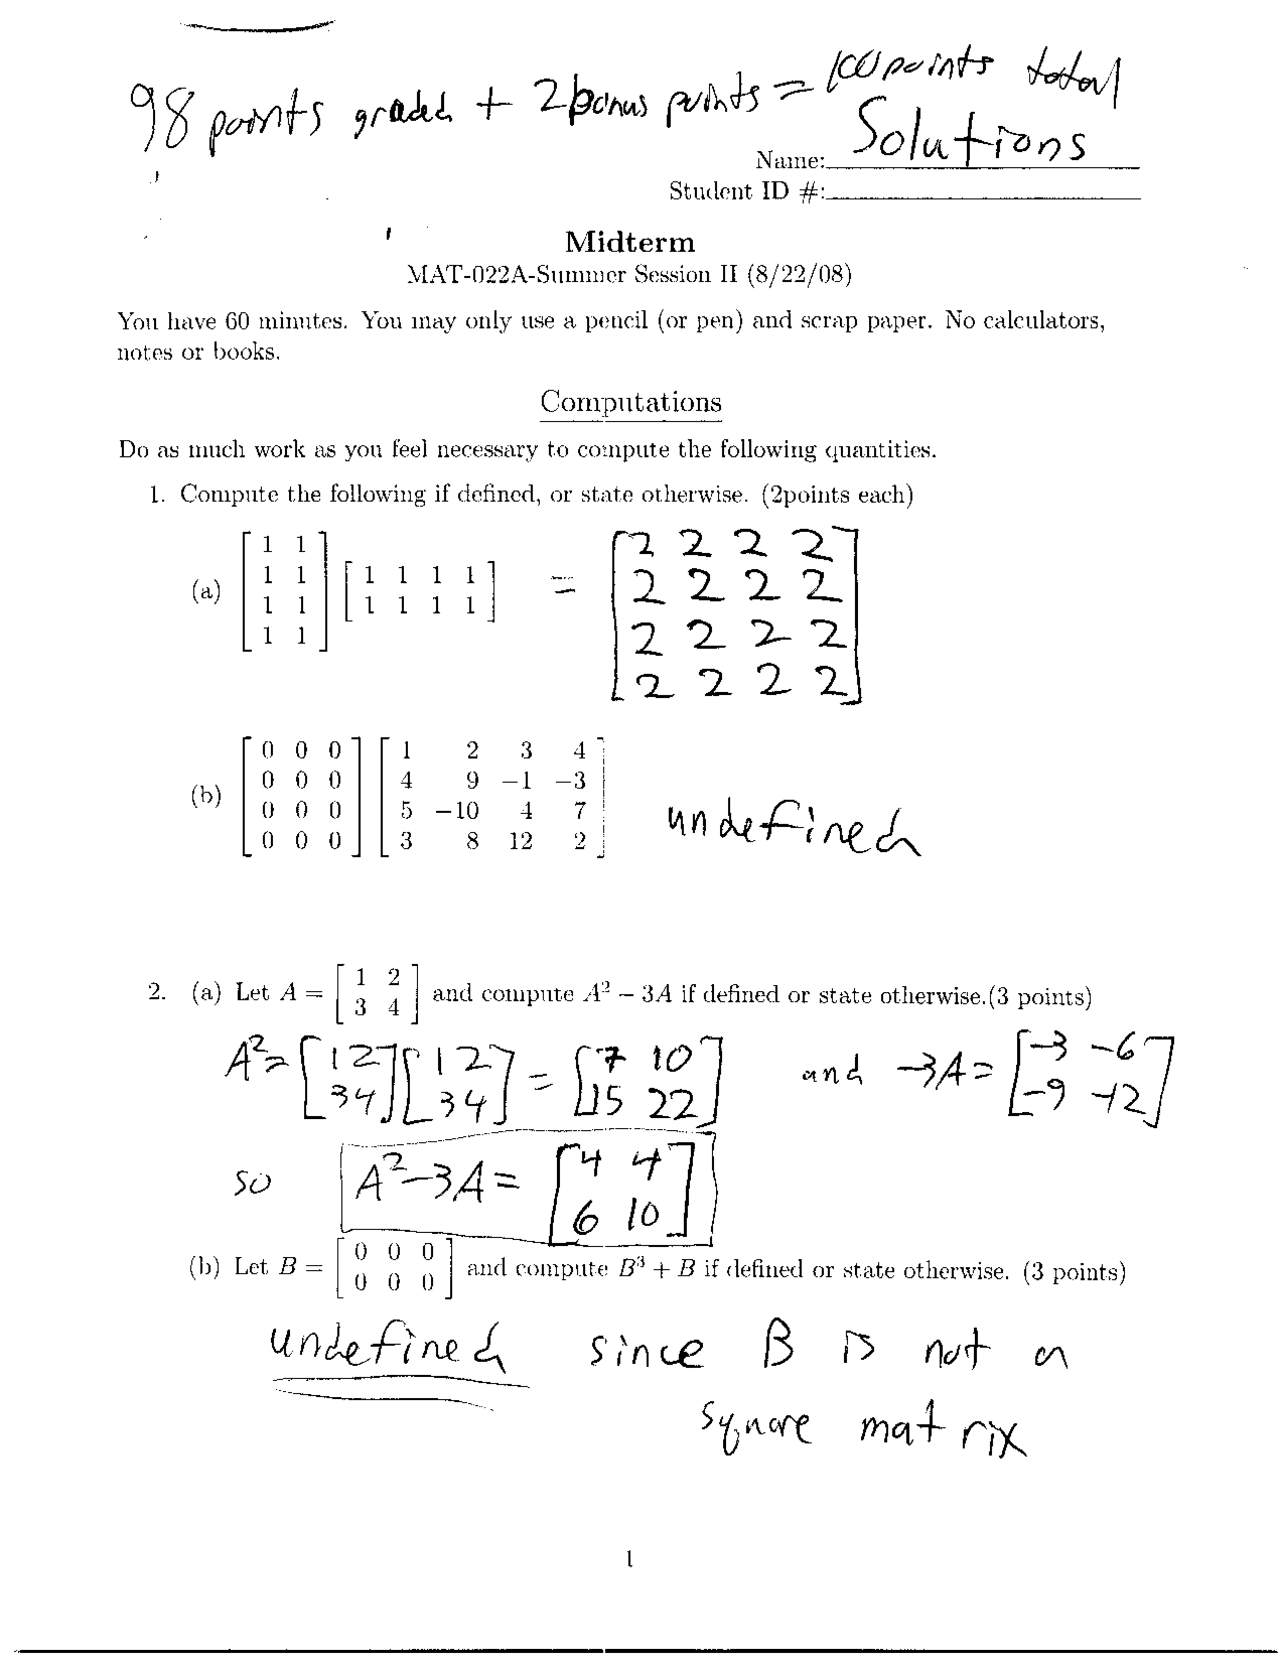 98 points graded + 2 bonus points = 100 points total
Name: Solutions
Student ID #:
Midterm
MAT-022A-Summer Session II (8/22/08)
You have 60 minutes. You may only use a pencil (or pen) and scrap paper. No calculators,
notes or books.
Computations
Do as much work as you feel necessary to compute the following quantities.
1. Compute the following if defined, or state otherwise. (2points each)
(a) [1 1; 1 1; 1 1; 1 1] [1 1 1 1; 1 1 1 1] = [2 2 2 2; 2 2 2 2; 2 2 2 2; 2 2 2 2]
(b) [0 0 0; 0 0 0; 0 0 0; 0 0 0] [1 2 3 4; 4 9 −1 −3; 5 −10 4 7; 3 8 12 2] undefined
2. (a) Let A = [1 2; 3 4] and compute A² − 3A if defined or state otherwise.(3 points)
A² = [1 2; 3 4] [1 2; 3 4] = [7 10; 15 22] and −3A = [−3 −6; −9 −12]
so A² − 3A = [4 4; 6 10]
(b) Let B = [0 0 0; 0 0 0] and compute B³ + B if defined or state otherwise. (3 points)
undefined since B is not a
square matrix
1